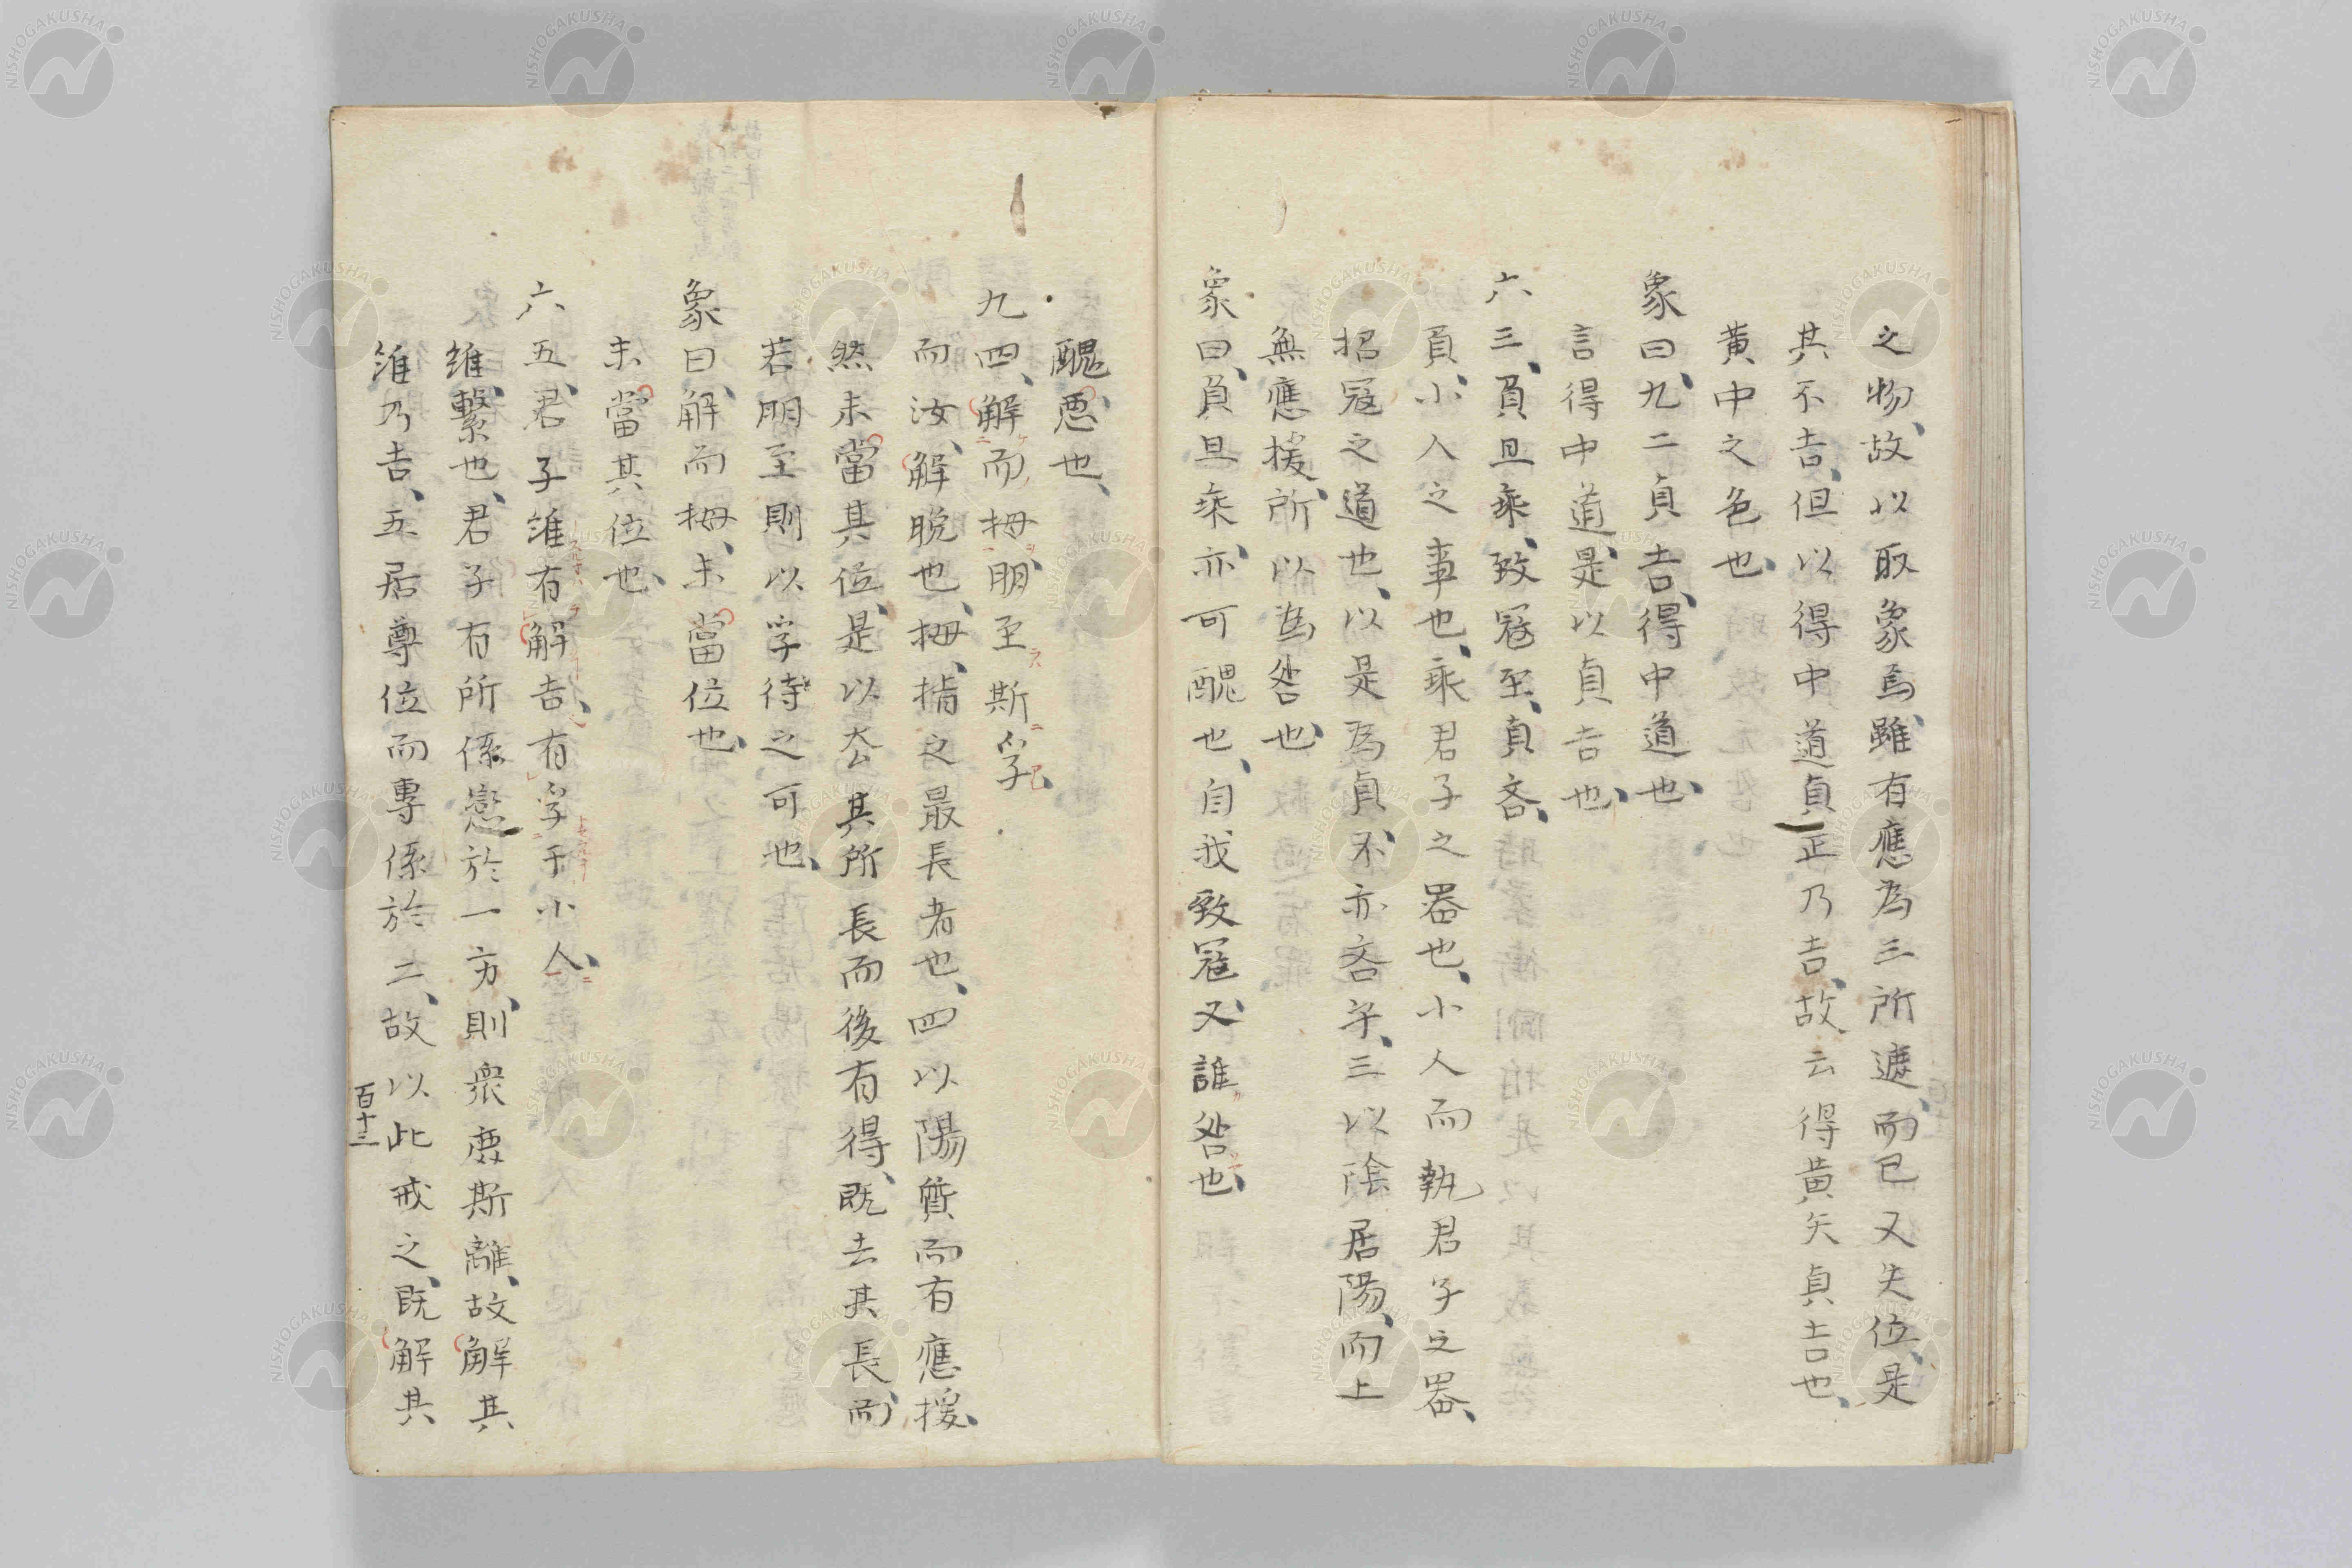 之物、故以取象焉、雖有應為三所遮、而已又失位、是
其不吉、但以得中道貞正乃吉、故云得黃矢貞吉也、
黃中之色也、
象曰、九二貞吉、得中道也、
言得中道、是以貞吉也、
六三、負且乘、致寇至、貞吝、
負、小人之事也、乘君子之器也、小人而執君子之器、
招寇之道也、以是為貞、不亦吝乎、三以陰居陽、而上
無應援、所以為咎也、
象曰、負且乘、亦可醜也、自我致寇、又誰咎也、
醜、惡也、
九四、解而拇、朋至斯孚、
而汝、解脫也、拇、指之最長者也、四以陽質而有應援、
然未當其位、是以去其所長而後有得、既去其長、而
若朋至則以孚待之可也、
象曰、解而拇、未當位也、
未當其位也、
六五、君子維有解、吉、有孚于小人、
維、繫也、君子有所係戀於一方、則衆庶斯離、故解其
維乃吉、五居尊位而專係於二、故以此戒之、既解其
百十三
NISHOGAKUSHA